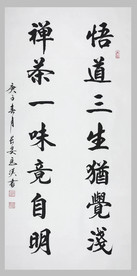 悟道三生猶覺淺
禪茶一味竟自明
庚子春月長安思溪書